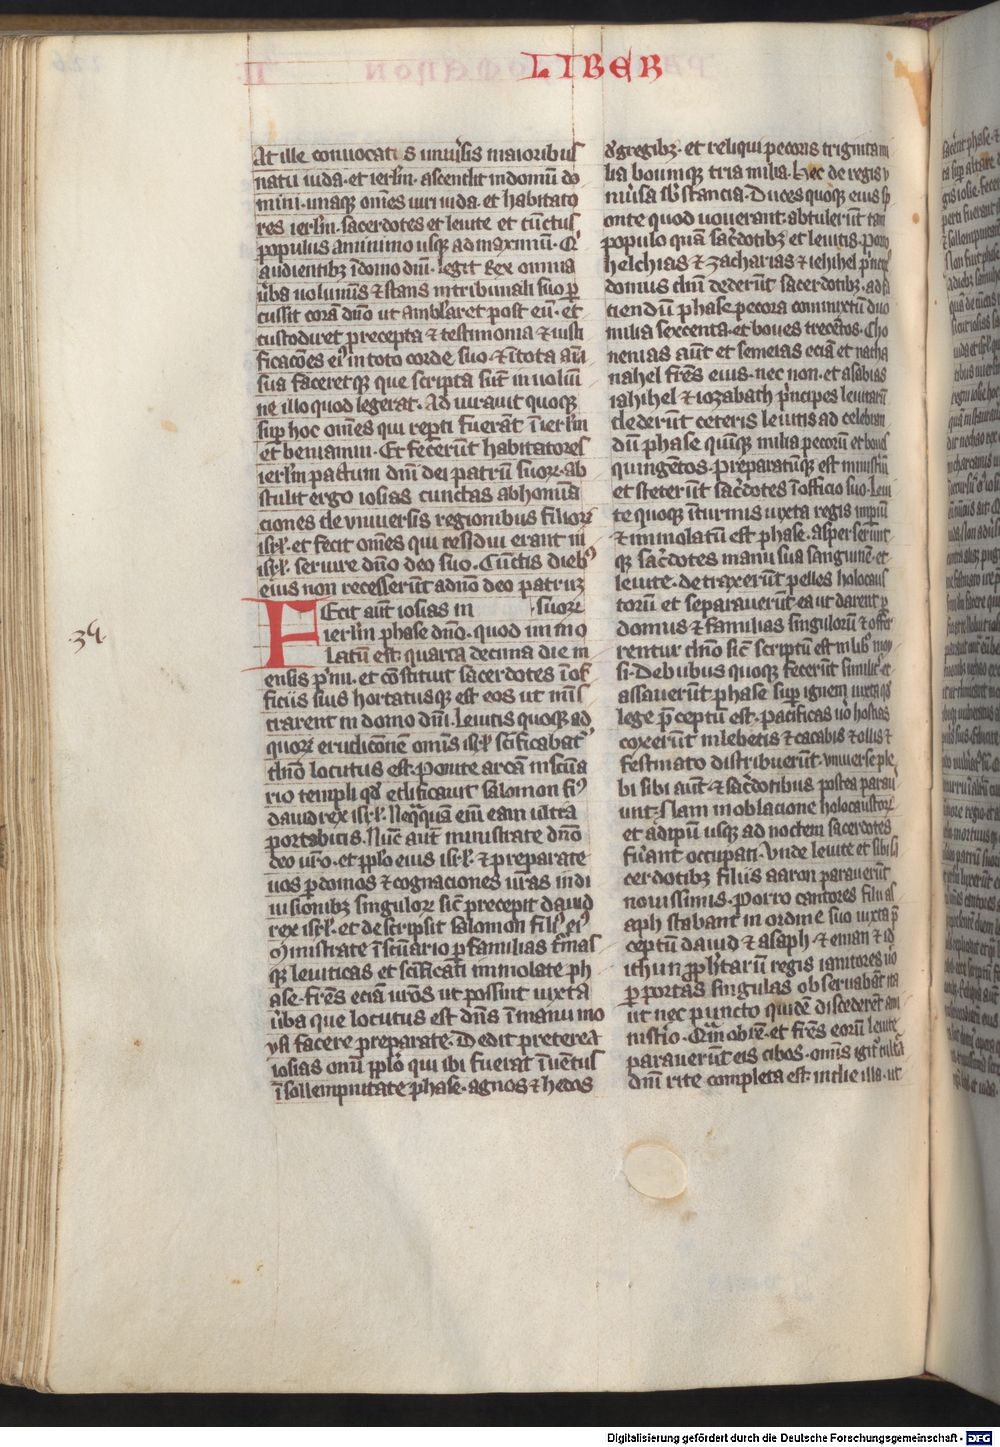 LIBER
At ille conuocatis uniu'sis maioribus
natu iuda · et ierl'm · ascendit in domum do
mini · unaq; om̄es uiri iuda · et habitato
res ierl'm · sacerdotes et leuite et cūctus
populus a minimo usq; ad maximū · Q'
audientibz ī domo dn̄i · legit Rex omnia
u̅ba uolumīs ⁊ stans in tribunali suo p̄
cussit corā dn̄o ut ambl'aret post eū · et
custodiret precepta ⁊ testimonia ⁊ iusti
ficac̄ones ei' in toto corde suo · ⁊ ī tota aīa
sua faceretq; que scripta sūt in uolūi
ne illo quod legerat · Ad iurauit quoq;
sup̄ hoc om̄es qui rep̄ti fuerāt ī ierl'm
et beniamin · Et fecerūt habitatores
ierl'm pactum dn̄i dei patrū suoꝝ · ab
stulit ergo iosias cunctas abhomīa
ciones de vniuersis regionibus filioꝝ
isr̄l · et fecit om̄es qui residui erant in
isr̄l · seruire dn̄o deo suo · Cūctis dieb'
eius non recesserūt a dn̄o deo patruꝫ
Fecit aūt iosias in · suoꝝ
34
ierl'm phase dn̄o · quod im mo
latū est · quarta decima die m
ensis p'mi · et cōstituit sacerdotes ī of
ficiis suis hortatusq; est eos ut mīs
trarent in domo dn̄i · Leuitis quoq; ad
quoꝝ erudic̄onē omīs isr̄l sc̄ificabat'
dn̄o locutus est · Ponite arcā in sc̄ua
rio templi qd̄ edificauit salomon fi'
dauid rex isr̄l · Neq̄quā eī eam ultra
portabitis · Nūc aūt ministrate dn̄o
deo ur̄o · et pp̄lo eius isr̄l · ⁊ preparate
uos p̄ domos ⁊ cognaciones ur̄as in di
uisionibz singuloꝝ sic̄ precepit dauid
rex isr̄l · et descripsit salomon fili' ei'
⁊ ministrate ī sc̄uario p̄ familias t̄mas
q; leuiticas et sc̄ificati immolate ph
ase · fr̄es eciā ur̄os ut possint iuxta
u̅ba que locutus est dn̄s ī manu mo
ysi facere preparate · Dedit preterea
iosias om̄i pp̄lo qui ibi fuerat ī uētus
ī sollempnitate phase · agnos ⁊ hedos
⁊ gregibz · et reliqui pecoris triginta mi
lia boumq; tria milia · hec de regis v
niu'sa sb̄stancia · Duces quoq; eius sp
onte quod uouerant · abtulerūt tam
populo quā sac̄dotibz et leuitis · Porro
helchias ⁊ zacharias ⁊ iehihel p'ncipes
domus dn̄i dederūt sacerdotibz · ad fa
ciendū phase pecora commixtū duo
milia sexcenta · et boues trecētos · Cho
nenias aūt et semeias eciā et natha
nahel fr̄es eius · nec non · et asabias
iahihel ⁊ iozabath p'ncipes leuitarū
dederūt ceteris leuitis ad celebran
dū phase quīq; milia pecorū et boues
quingētos · preparatūq; est ministīū
et steterūt sac̄dotes ī officio suo · Leui
te quoq; ī turmis iuxta regis impiū
⁊ immolatū est phase · asperserūnt
q; sac̄dotes manu sua sanguinē · et
leuite · de traxerūt pelles holocaus
torū et separauerūt ea ut darent p̄
domus ⁊ familias singulorū ⁊ offer
rentur dn̄o sic̄ scriptū est in lib̄o moy
si · De bubus quoq; fecerūt simili' · et
assauerūt phase sup̄ ignem iuxta qd̄
lege p̄ceptū est · pacificas u̅o hostias
coxerūt in lebetis ⁊ cacabis ⁊ ollis ⁊
festinato distribuerūt · vniuerse ple
bi sibi aūt · ⁊ sac̄dotibus postea paraue
unt · Nam in oblacione holocaustoꝝ
et adipū usq; ad noctem sacerdotes
fu'ant occupati · Vnde leuite et sibi sa
cerdotibz filiis aaron parauerūt
nouissimis · Porro cantores filii as
aph stabant in ordine suo iuxta p̄
ceptū dauid ⁊ asaph · ⁊ eman ⁊ id
ithun pp̄h'tarū regis ianitores u̅o
p̄ portas singulas obseruabāt ita
ut nec puncto quidē discederēt a mi
nist̄io · Quā obrē · et fr̄es eorū leuite
parauerūt eis cibos · omīs igit' cultu'a
dn̄i rite completa est · in die illa · ut
Digitalisierung gefördert durch die Deutsche Forschungsgemeinschaft - DFG